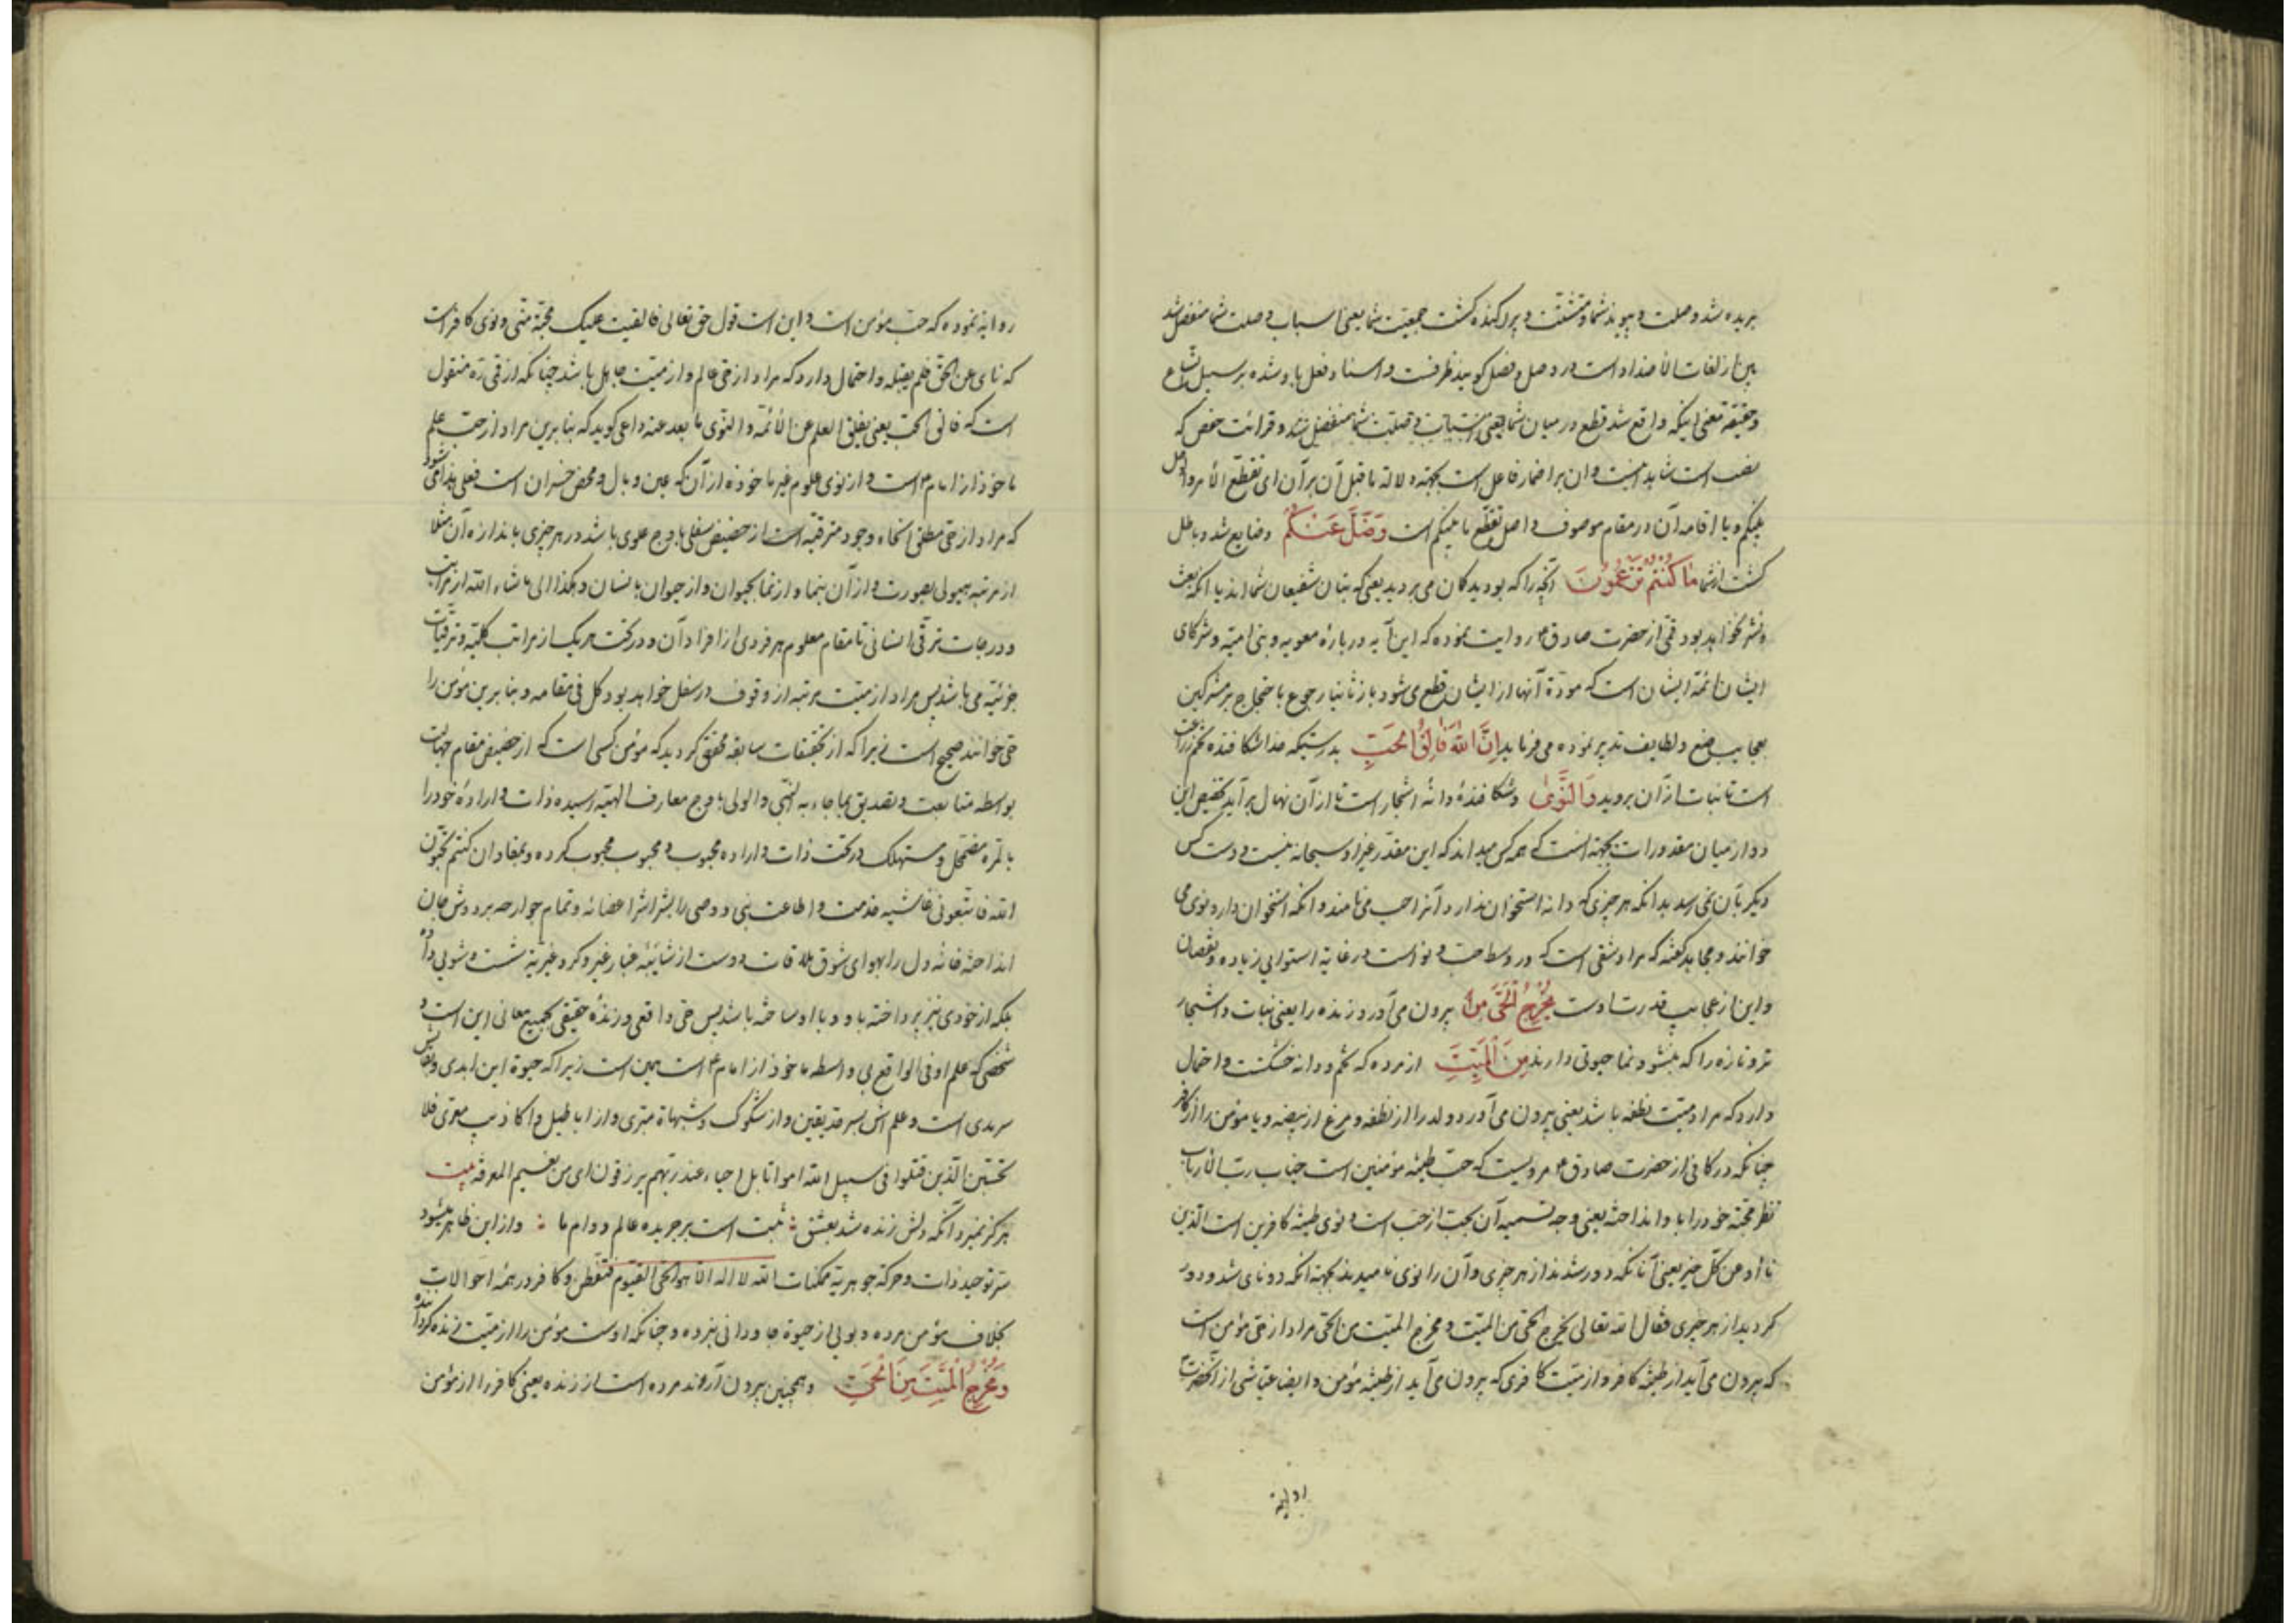 بریده شد وصلت و پیوند شما و متشتت و پراکنده گشت جمعیت شما یعنی اسباب وصلت شما منفصل شد
بین از لغات الاضداد است در وصل و فصل گویند ظرفست و اسناد فعل باو شده بر سبیل اتساع
و حقیقة معنی اینکه واقع شد قطع در میان شما یعنی اسباب وصلت شما منفصل شد و قرائت حفص که
نصب است شاید اینست و ان بر اضمار فاعل است بجهته دلالة ما قبل آن بر آن ای تقطع الامر والوصل
بینکم و یا اقامه آن در مقام موصوف و اصل تقطع ما بینکم است وَضَلَّ عَنْكُمْ و ضایع شد و باطل
گشت از شما مَا كُنْتُمْ تَزْعُمُونَ آنچه را که بودید گمان می بردید یعنی که بتان شفیعان شما اند یا آنکه بعث
و نشر نخواهد بود قمی از حضرت صادق ع روایت نموده که این آیه در بارهٔ معویه و بنی امیه و شرکای
ایشان و ائمهٔ ایشان است که مودة آنها از ایشان قطع می شود باز ثانیا رجوع باحتجاج بر مشرکین
بعجایب صنع و لطایف تدبیر نموده می فرماید إِنَّ اللهَ فَالِقُ الْحَبِّ بدرستیکه خدا شکافنده تخم زراعت
است تا نبات از آن بروید وَالنَّوَى و شکافندهٔ دانهٔ اشجار است تا از آن نهال بر آید تخصیص این
دو از میان مقدورات بجهته آنست که همه کس میداند که این مقدر غیر او سبحانه نیست و دست کس
دیگر بآن نمی رسد بدانکه هر چیزی که دانه استخوان ندارد آنرا حب می نامند و آنکه استخوان دارد نوی می
خوانند و مجاهد گفته که مراد شقی است که در وسط حب و نواست در غایة استوا بی زیاده و نقصان
و این از عجایب قدرت اوست يُخْرِجُ الْحَيَّ مِنَ بیرون می آورد زنده را یعنی نبات و اشجار
تر و تازه را که بنشو و نما حیوتی دارند مِنَ الْمَيِّتِ از مرده که تخم و دانه خشکست و احتمال
دارد که مراد میت نطفه باشد یعنی بیرون می آورد ولد را از نطفه و مرغ از بیضه و یا مؤمن را از کافر
چنانکه در کافی از حضرت صادق ع مرویست که حب طینه مؤمنین است جناب رب الارباب
نظر محبته خود را باو انداخته یعنی وجه تسمیه آن بحب از حب است و نوی طینهٔ کافرین است الذین
ناؤا عن کل خیر یعنی آنانکه دور شدند از هر چیزی و آن را نوی نامیدند بجهة آنکه دو نای شد و دور
گردید از هر چیزی فقال الله تعالی یخرج الحی من المیت و مخرج المیت من الحی مراد از حی مؤمن است
که بیرون می آید از طینهٔ کافر و از میت کافری که بیرون می آید از طینهٔ مؤمن و ایضا عیاشی از آنحضرت
روایة
روایة نموده که حب مؤمن است و این است قول حق تعالی فالقیت علیک محبة منی و نوی کافر است
که نای عن الحق فلم یقبله و احتمال دارد که مراد از حی عالم و از میت جاهل باشد چنانکه از قمی ره منقول
است که فالق الحب یعنی یفلق العلم عن الائمه و النوی ما بعد عنه داعی گوید که بنابرین مراد از حب علم
ماخوذ از امام ع است و از نوی علوم غیر ماخوذه از آن که عین وبال و محض خسران است فعلی هذا می شود
که مراد از حی مطلق انحاء وجود مترقیه است از حضیض سفلی باوج علوی باشد در هر چیزی باندازه آن مثلا
از مرتبه هیولی بصورت و از آن بنما و از نما بحیوان و از حیوان بانسان و هکذا الی ما شاء الله از مراتب
و درجات ترقی انسانی تا مقام معلوم هر فردی از افراد آن و در تحت هر یک از مراتب کلیه و ترقیات
جزئیه می باشد پس مراد از میت مرتبه از وقوف در سفل خواهد بود کل فی مقامه و بنابرین مؤمن را
حی خوانند صحیح است زیرا که از تحقیقات سابقه محقق گردید که مؤمن کسی است که از حضیض مقام جهالت
بواسطه متابعت و تصدیق بما جاء به النبی و الولی باوج معارف الهیه رسیده ذات و ارادهٔ خود را
بالمره مضمحل و مستهلک در تحت ذات و اراده محبوب و محبوب محبوب کرده و بمفاد ان کنتم تحبون
الله فاتبعونی غاشیه خدمت و اطاعت نبی و وصی را بشراشر اعضائه و تمام جوارحه بر دوش جان
انداخته خانه دل را بهوای شوق ملاقات دوست از شایبهٔ غبار غیر و گرد غیریة شست و شوی داده
بلکه از خودی نیز پرداخته باو و با او ساخته باشد پس حی واقعی و زندهٔ حقیقی بجمیع معانی این است و
شخصی که علم او فی الواقع بی واسطه ماخوذ از امام ع است همین است زیرا که حیوة این ابدی و بقایش
سرمدی است و علم اش بسرحد یقین و از شکوک و شبهاة مبری و از اباطیل و اکاذیب معری فلا
تحسبن الذین قتلوا فی سبیل الله امواتا بل احیاء عند ربهم یرزقون ای من نعیم المعرفة بیت
هرگز نمیرد آنکه دلش زنده شد بعشق ؛ ثبت است بر جریده عالم دوام ما ؛ و از این ظاهر میشود
سر توحید ذات و حرکة جوهریة ممکنات الله لا اله الا هو الحی القیوم فتفطن و کافر در همهٔ احوالات
بخلاف مؤمن مرده و بوئی از حیوة جاودانی نبرده و چنانکه اوست مؤمن را از میت زنده گرداننده
وَمُخْرِجُ الْمَيِّتِ مِنَ الْحَيِّ و همچنین بیرون آرنده مرده است از زنده یعنی کافر را از مؤمن